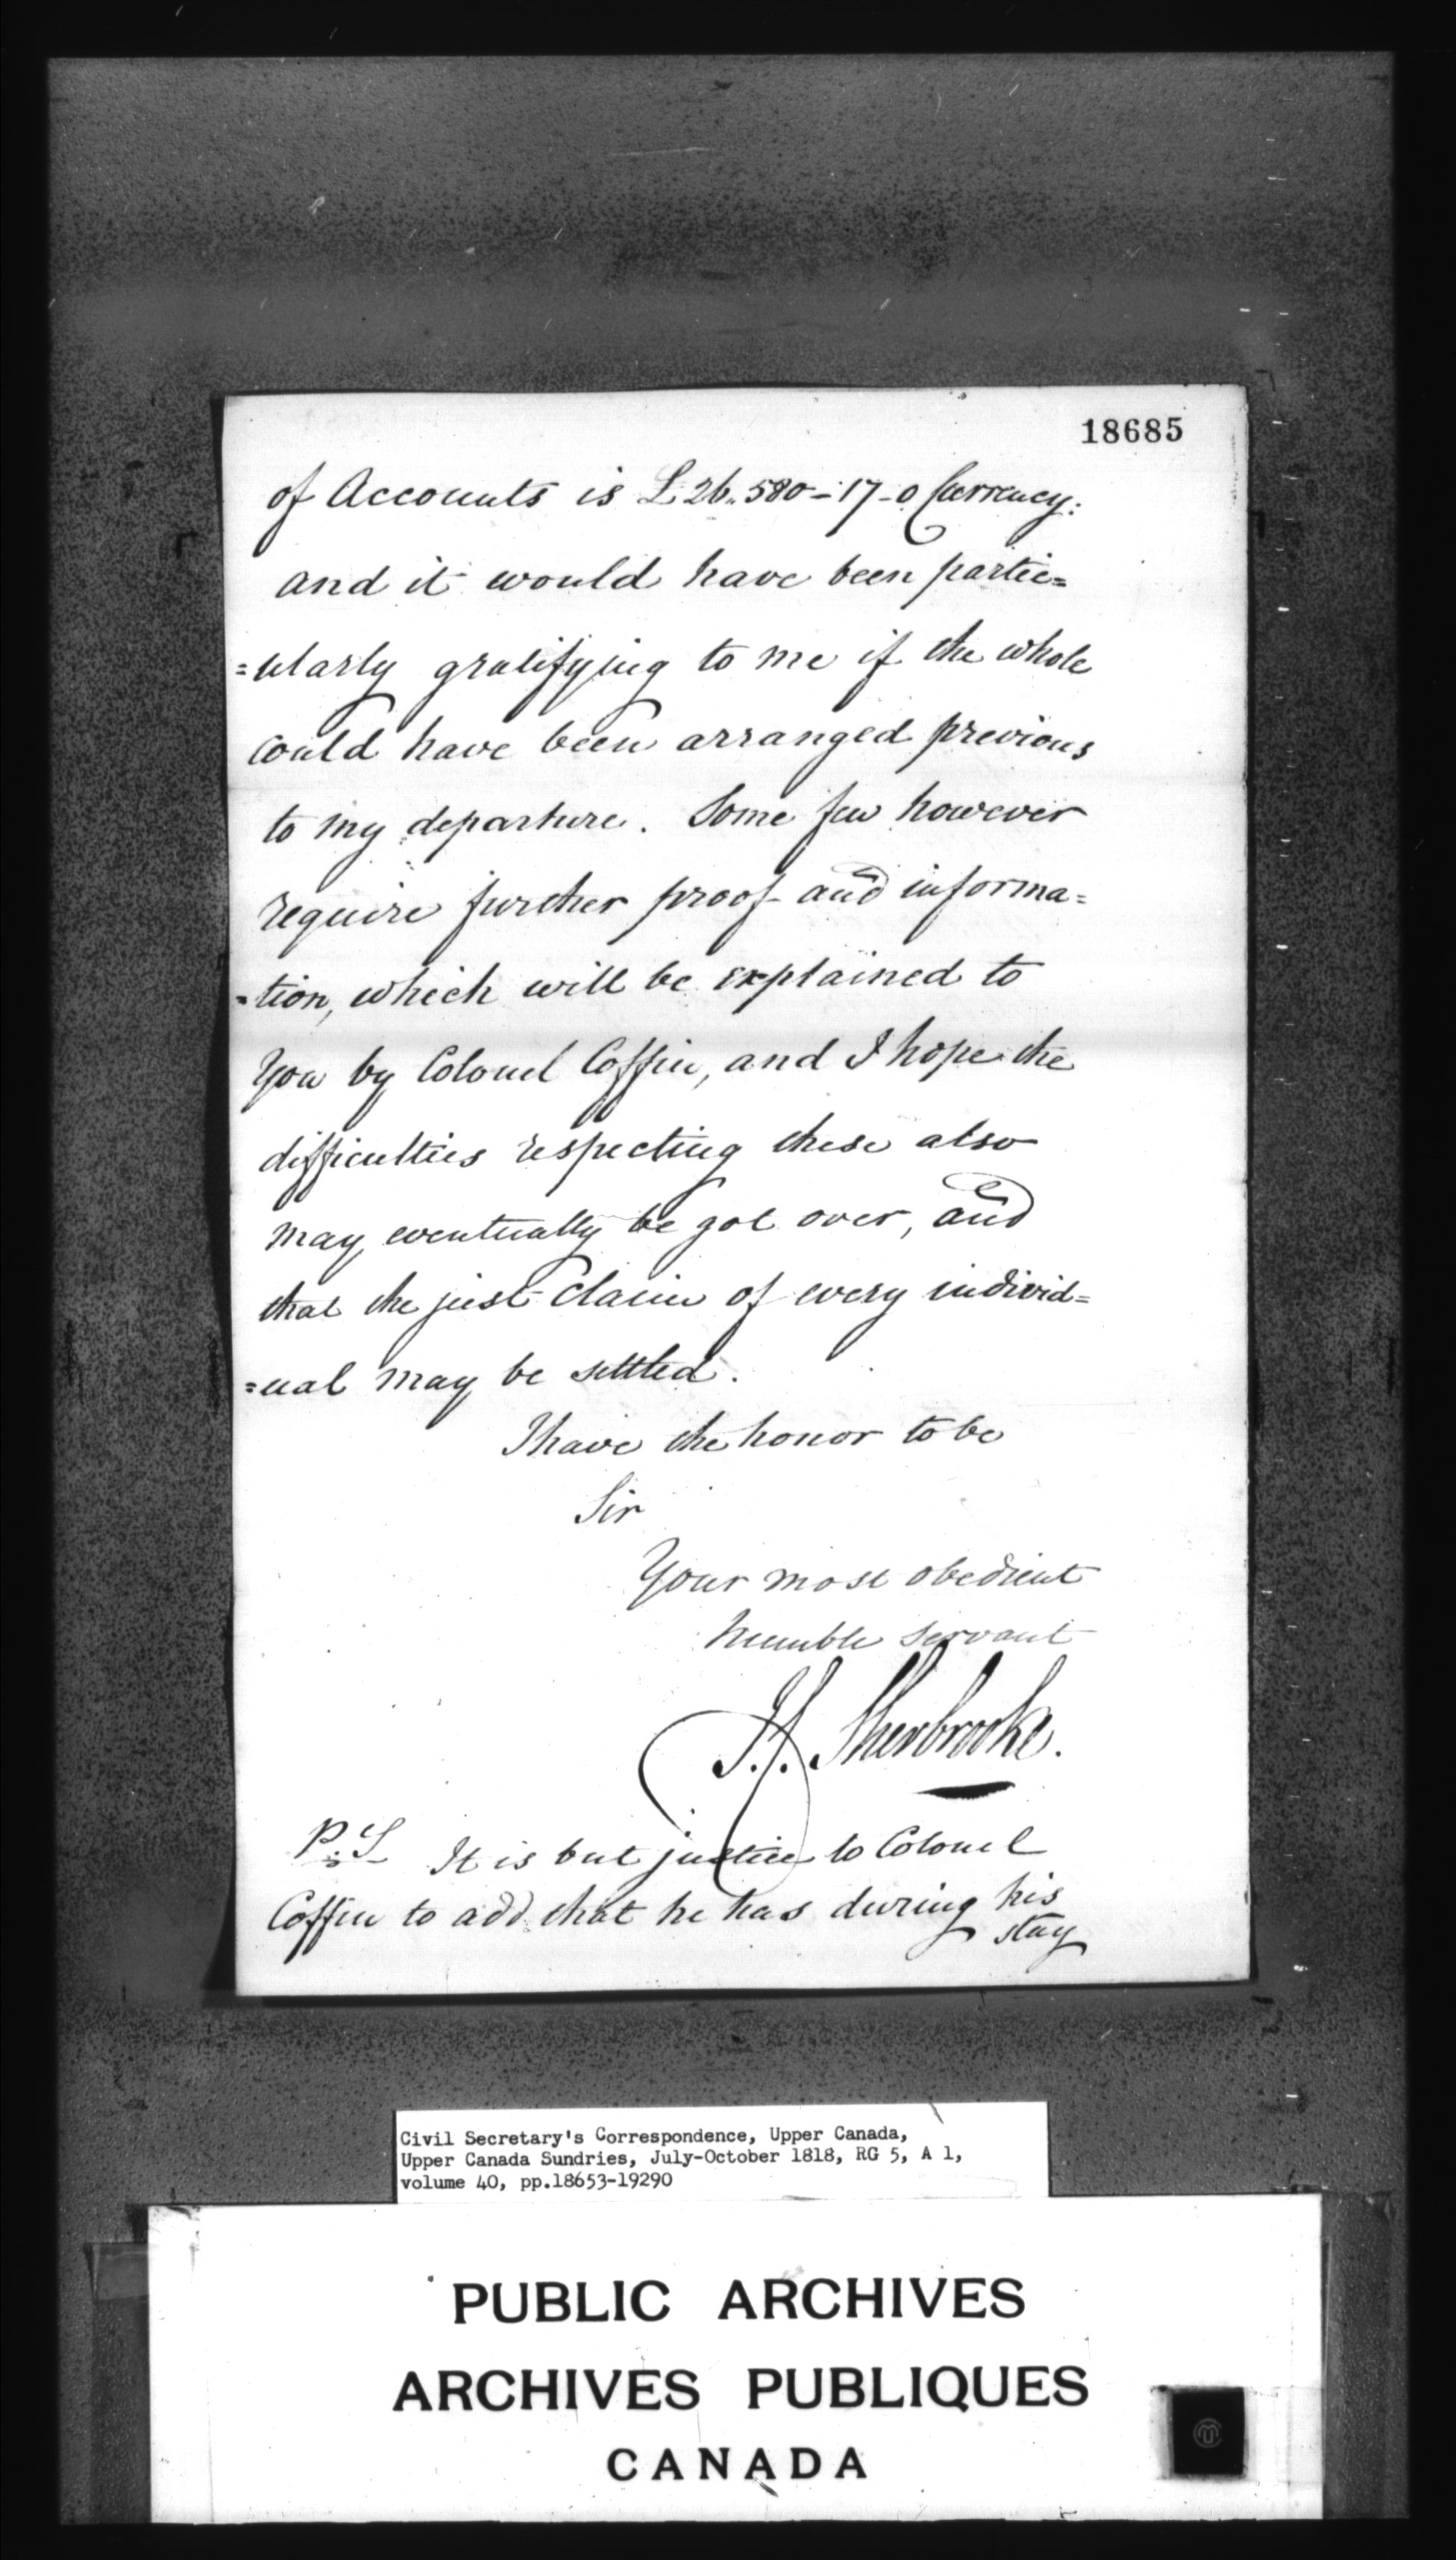 18685
of Accounts is £26,,580-17-0 Currency:
and it would have been partic=
=ularly gratifying to me if the whole
could have been arranged previous
to my departure. Some few however
require further proof and informa=
=tion, which will be explained to
You by Colonel Coffin, and I hope the
difficulties respecting these also
may eventually be got over, and
that the just Claim of every individ=
=ual may be settled.
I have the honor to be
Sir
Your most obedient
humble servant
J. Sherbrooke.
P.S It is but justice to Colonel
Coffin to add that he has during his
stay
Civil Secretary's Correspondence, Upper Canada,
Upper Canada Sundries, July-October 1818, RG 5, A 1,
volume 40, pp.18653-19290
PUBLIC ARCHIVES
ARCHIVES PUBLIQUES
CANADA